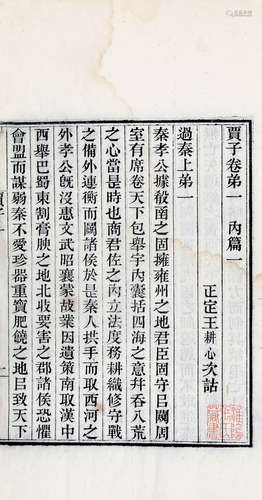 賈子卷弟一　內篇一
正定王耕心次詁
過秦上弟一
秦孝公據殽函之固擁雍州之地君臣固守㠯闚周
室有席卷天下包舉宇內囊括四海之意幷吞八荒
之心當是時也商君佐之內立法度務耕織修守戰
之備外連衡而鬬諸侯於是秦人拱手而取西河之
外孝公既沒惠文武昭襄蒙故業因遺策南取漢中
西舉巴蜀東割膏腴之地北收要害之郡諸侯恐懼
會盟而謀弱秦不愛珍器重寶肥饒之地㠯致天下